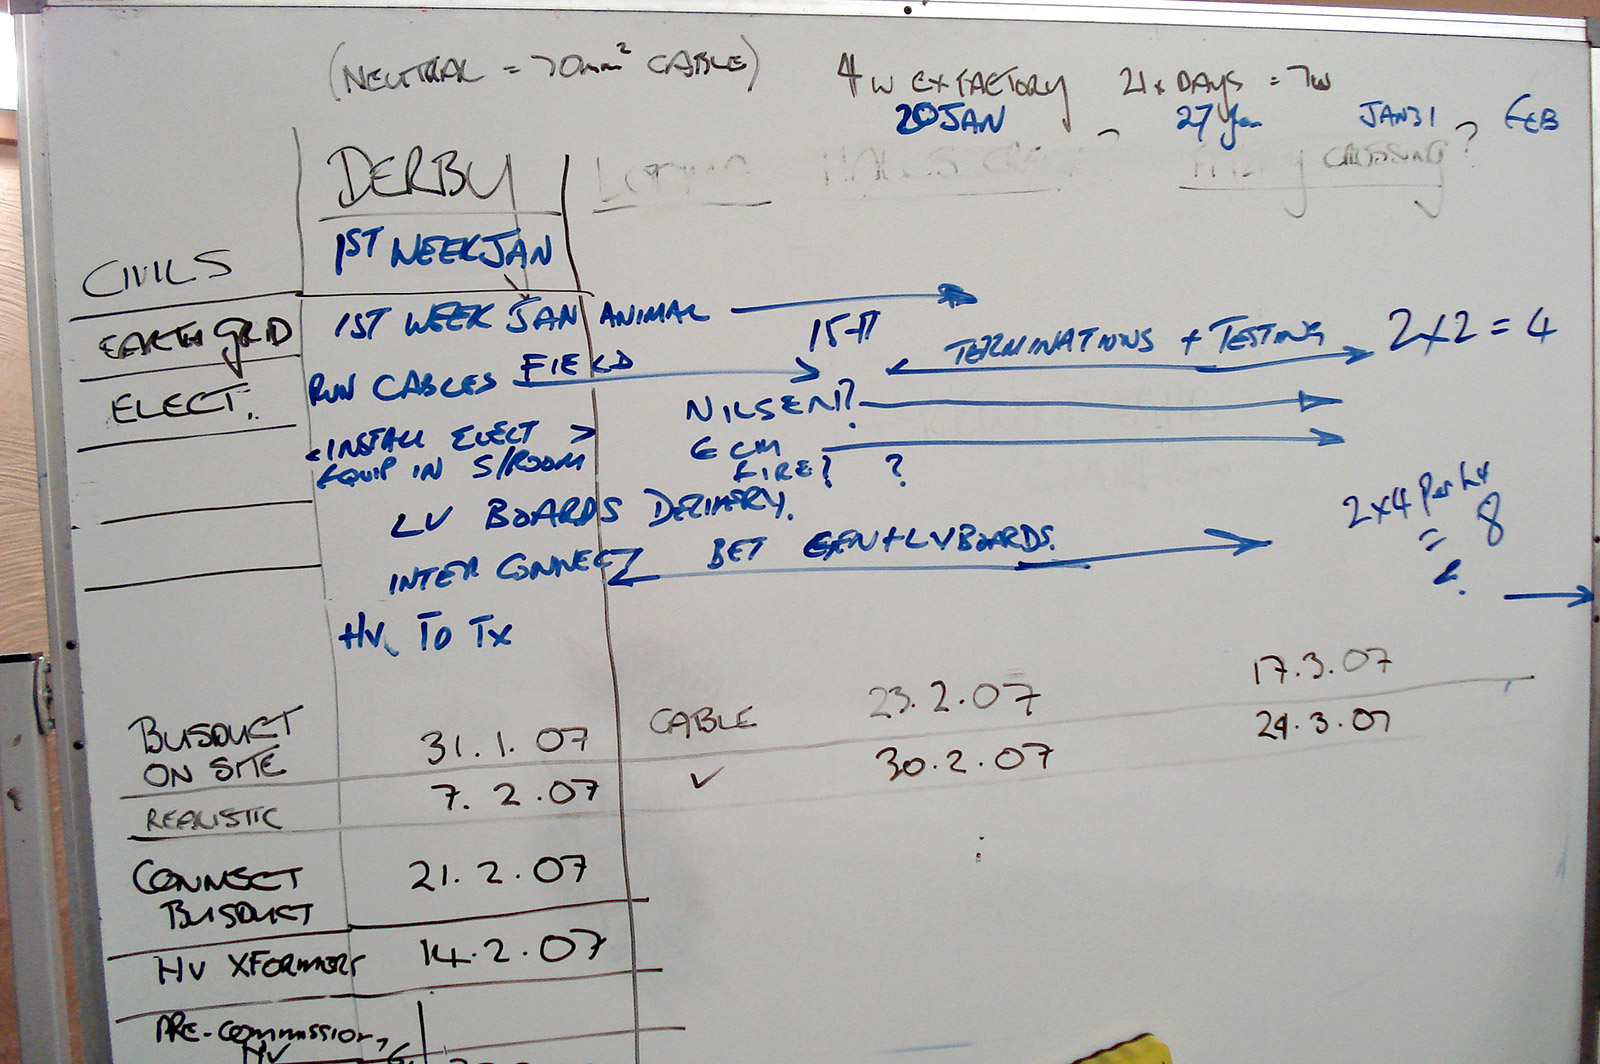 (NEUTRAL = 70mm² CABLE) 4w EX FACTORY 21x DAYS = 7w
20 JAN 27 Jan JAN 31 ? FEB
DERBY CROSSING
CIVILS 1ST WEEK JAN
EARTH GRID 1ST WEEK JAN ANIMAL
15-17 TERMINATIONS + TESTING 2x2 = 4
ELECT. RUN CABLES FIELD
NILSEN?
<INSTALL ELECT > ECM
EQUIP IN S/ROOM FIRE? ?
LV BOARDS DELIVERY. 2x4 per
= 8
INTER CONNECT BET GEN+LV BOARDS.
HV TO TX
BUSDUCT ON SITE 31.1.07 CABLE 23.2.07 17.3.07
REALISTIC 7.2.07 ✓ 30.2.07 24.3.07
CONNECT BUSDUCT 21.2.07
HV XFORMERS 14.2.07
PRE-COMMISSION,
HV